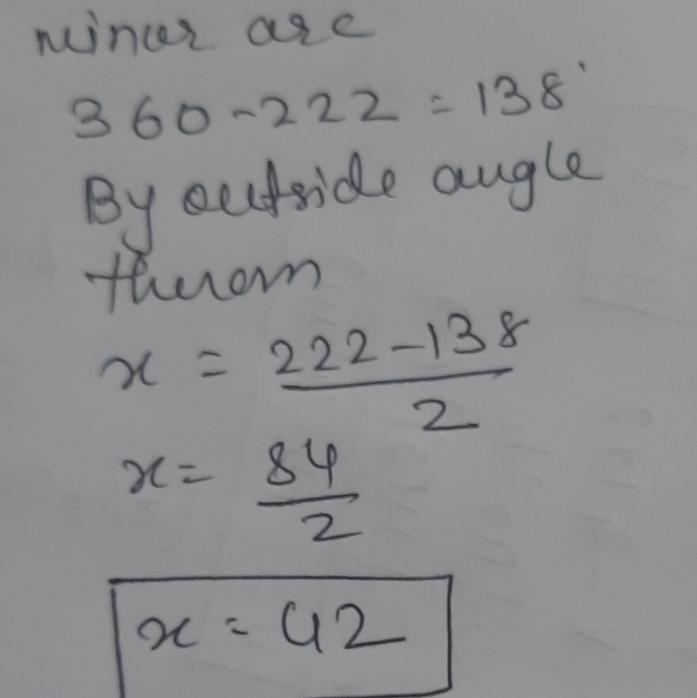 minor arc
360-222 = 138°
By outside angle
therom
x = 222-138 / 2
x = 84 / 2
x = 42